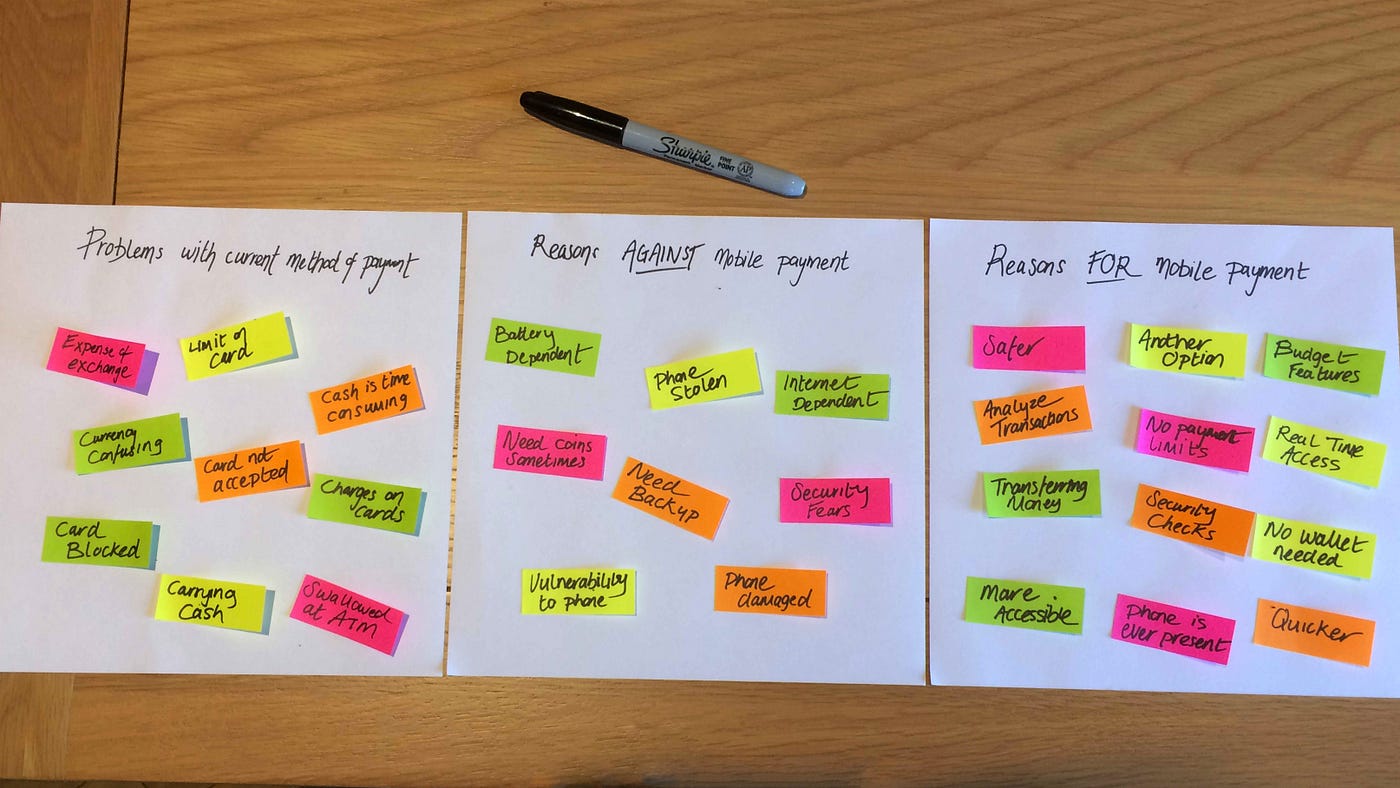 Sharpie
FINE
POINT
AP
Problems with current method of payment
Expense of
exchange
Limit on
Card
Cash is time
consuming
Currency
Confusing
Card not
accepted
Charges on
Cards
Card
Blocked
Carrying
Cash
Swallowed
at ATM
Reasons AGAINST Mobile payment
Battery
Dependent
Phone
Stolen
Internet
Dependent
Need coins
Sometimes
Need
Backup
Security
Fears
Vulnerability
to phone
Phone
damaged
Reasons FOR Mobile Payment
Safer
Another
Option
Budget
Features
Analyze
Transactions
No payment
Limits
Real Time
Access
Transferring
Money
Security
Checks
No wallet
needed
More
Accessible
Phone is
ever present
Quicker